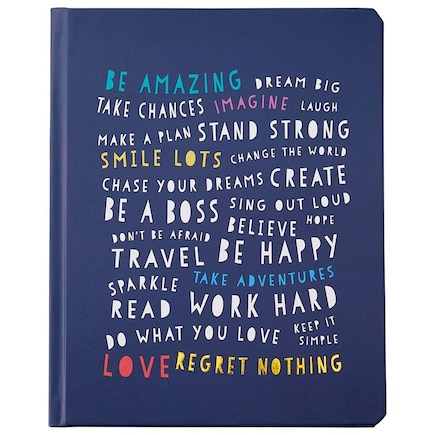 BE AMAZING DREAM BIG
TAKE CHANCES IMAGINE LAUGH
MAKE A PLAN STAND STRONG
SMILE LOTS CHANGE THE WORLD
CHASE YOUR DREAMS CREATE
BE A BOSS SING OUT LOUD
BELIEVE HOPE
DON'T BE AFRAID
TRAVEL BE HAPPY
SPARKLE TAKE ADVENTURES
READ WORK HARD
DO WHAT YOU LOVE KEEP IT SIMPLE
LOVE REGRET NOTHING